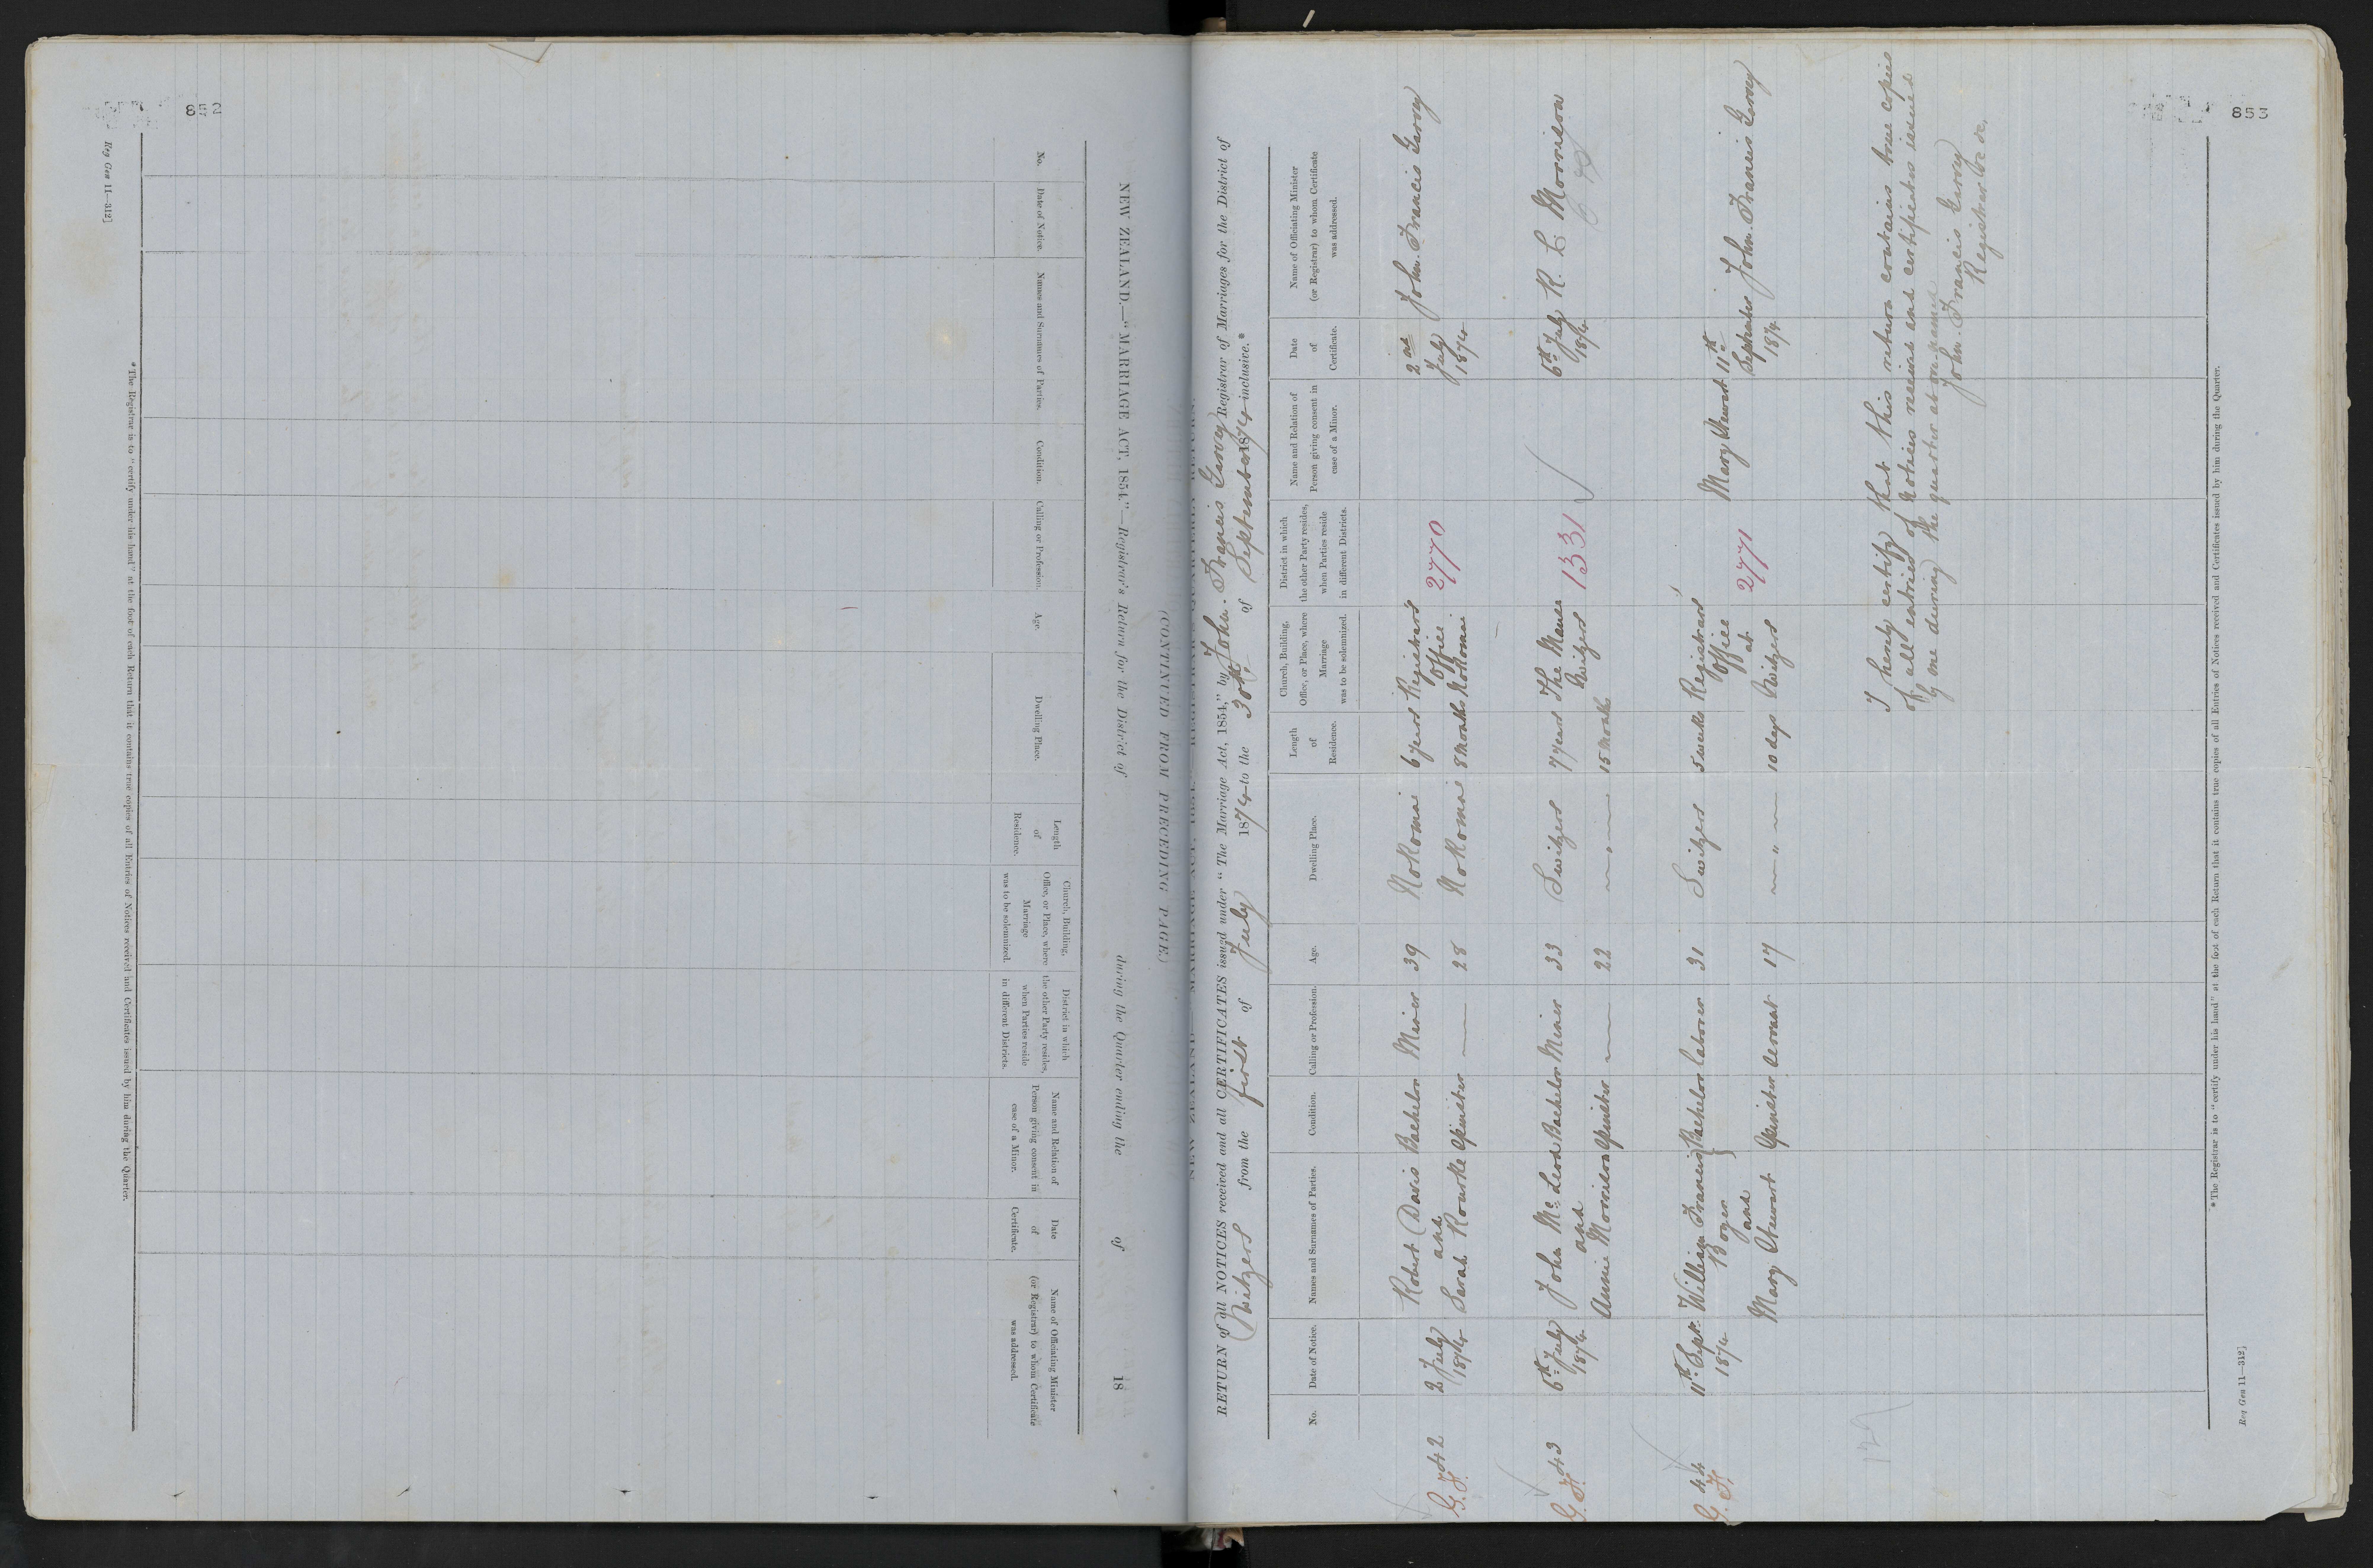 852
Reg Gen 11—312]
NEW ZEALAND.—"MARRIAGE ACT, 1854."—Registrar's Return for the District of during the Quarter ending the of 18
(CONTINUED FROM PRECEDING PAGE.)
No.
Date of Notice.
Names and Surnames of Parties.
Condition.
Calling or Profession.
Age.
Dwelling Place.
Length
of
Residence.
Church, Building,
Office, or Place, where
Marriage
was to be solemnized.
District in which
the other Party resides,
when Parties reside
in different Districts.
Name and Relation of
Person giving consent in
case of a Minor.
Date
of
Certificate.
Name of Officiating Minister
(or Registrar) to whom Certificate
was addressed.
*The Registrar is to "certify under his hand" at the foot of each Return that it contains true copies of all Entries of Notices received and Certificates issued by him during the Quarter.
853
RETURN of all NOTICES received and all CERTIFICATES issued under "The Marriage Act, 1854," by John Francis Garvey Registrar of Marriages for the District of
Switzers from the first of July 1874 to the 30th of September 1874 inclusive.*
No.
Date of Notice.
Names and Surnames of Parties.
Condition.
Calling or Profession.
Age.
Dwelling Place.
Length
of
Residence.
Church, Building,
Office, or Place, where
Marriage
was to be solemnized.
District in which
the other Party resides,
when Parties reside
in different Districts.
Name and Relation of
Person giving consent in
case of a Minor.
Date
of
Certificate.
Name of Officiating Minister
(or Registrar) to whom Certificate
was addressed.
42 2 July Robert Davis Bachelor Miner 39 Nokomai 6 years Registrar's 2nd John Francis Garvey
1874 and Office 2770 July
Sarah Rourke Spinster — 28 Nokomai 8 Months Nokomai 1874
43 6th July John McLeod Bachelor Miner 33 Switzers 7 years The Manse 1331 6th July R. C. Morrison
1874 and Switzers 1874
Annie Morrison Spinster — 22 — " — 15 Months
44 11th Sept. William Francis Bachelor Laborer 31 Switzers 5 weeks Registrars Mary Stewart 11th John Francis Garvey
1874 Boyer Office September
and at 2771 1874
Mary Stewart Spinster Servant 17 — " — 10 days Switzers
I hereby certify that this return contains true copies
of all entries of Notices received and certificates issued
by me during the quarter above named
John Francis Garvey
Registrar &c &c.
*The Registrar is to "certify under his hand" at the foot of each Return that it contains true copies of all Entries of Notices received and Certificates issued by him during the Quarter.
Reg Gen 11—312]